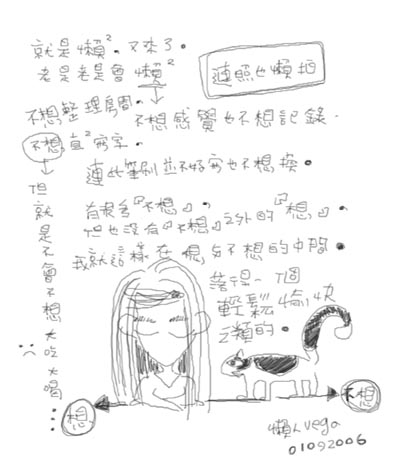 就是懶²。又來了。
老是老是會懶²
連照也懶拍
不想整理房間。
不想感覺也不想記錄。
不想直²寫字。
連此筆刷並不好寫也不想換。
有很多『不想』。
但也沒有『不想』之外的『想』。
我就這樣在想與不想的中間。
落得一個
輕鬆愉快
之類的。
但就是不會不想大吃大喝…
想
不想
懶人vega
01092006